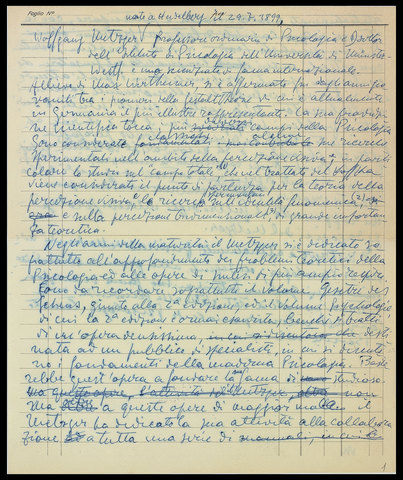 Foglio N°
nato a Heidelberg il 22.7.1899,
Wolfgang Metzger Professore ordinario di Psicologia e Direttore
dell'Istituto di Psicologia dell'Università di Münster
Westf. è uno scienziato di fama internazionale.
Allievo di Max Wertheimer, si è affermato fin dagli anni
tra i pionieri della Gestalttheorie di cui è attualmente
in Germania il più illustre rappresentante. La sua produzio
ne scientifica tocca i più campi della Psicologia
Sono considerate le ricerche
sperimentali nell'ambito della percezione visiva, in parti
colare lo studio sul campo totale che nel trattato del Koffka
viene considerato il punto di partenza per la teoria della
percezione visiva, le ricerche sull'identità fenomenica,
e sulla percezione tridimensionale di grande importan
za teoretica.
Negli anni della maturità il Metzger si è dedicato so
prattutto all'approfondimento dei problemi teoretici della
Psicologia ed alle opere di sintesi di più ampio respiro.
Sono da ricordare soprattutto il volume Gesetze des
Sehens, giunto alla 2ª edizione, ed il volume Psychologie
di cui la 2ª edizione è ormai esaurita, benché si tratti
di un'opera densissima, desti
nata ad un pubblico di specialisti, in cui si discuto
no i fondamenti della moderna Psicologia. Baste
rebbe quest'opera a fondare la fama di studioso
ma non
ma a queste opere di maggior mole il
Metzger ha dedicato la sua attività alla collabora
zione a tutta una serie di
1